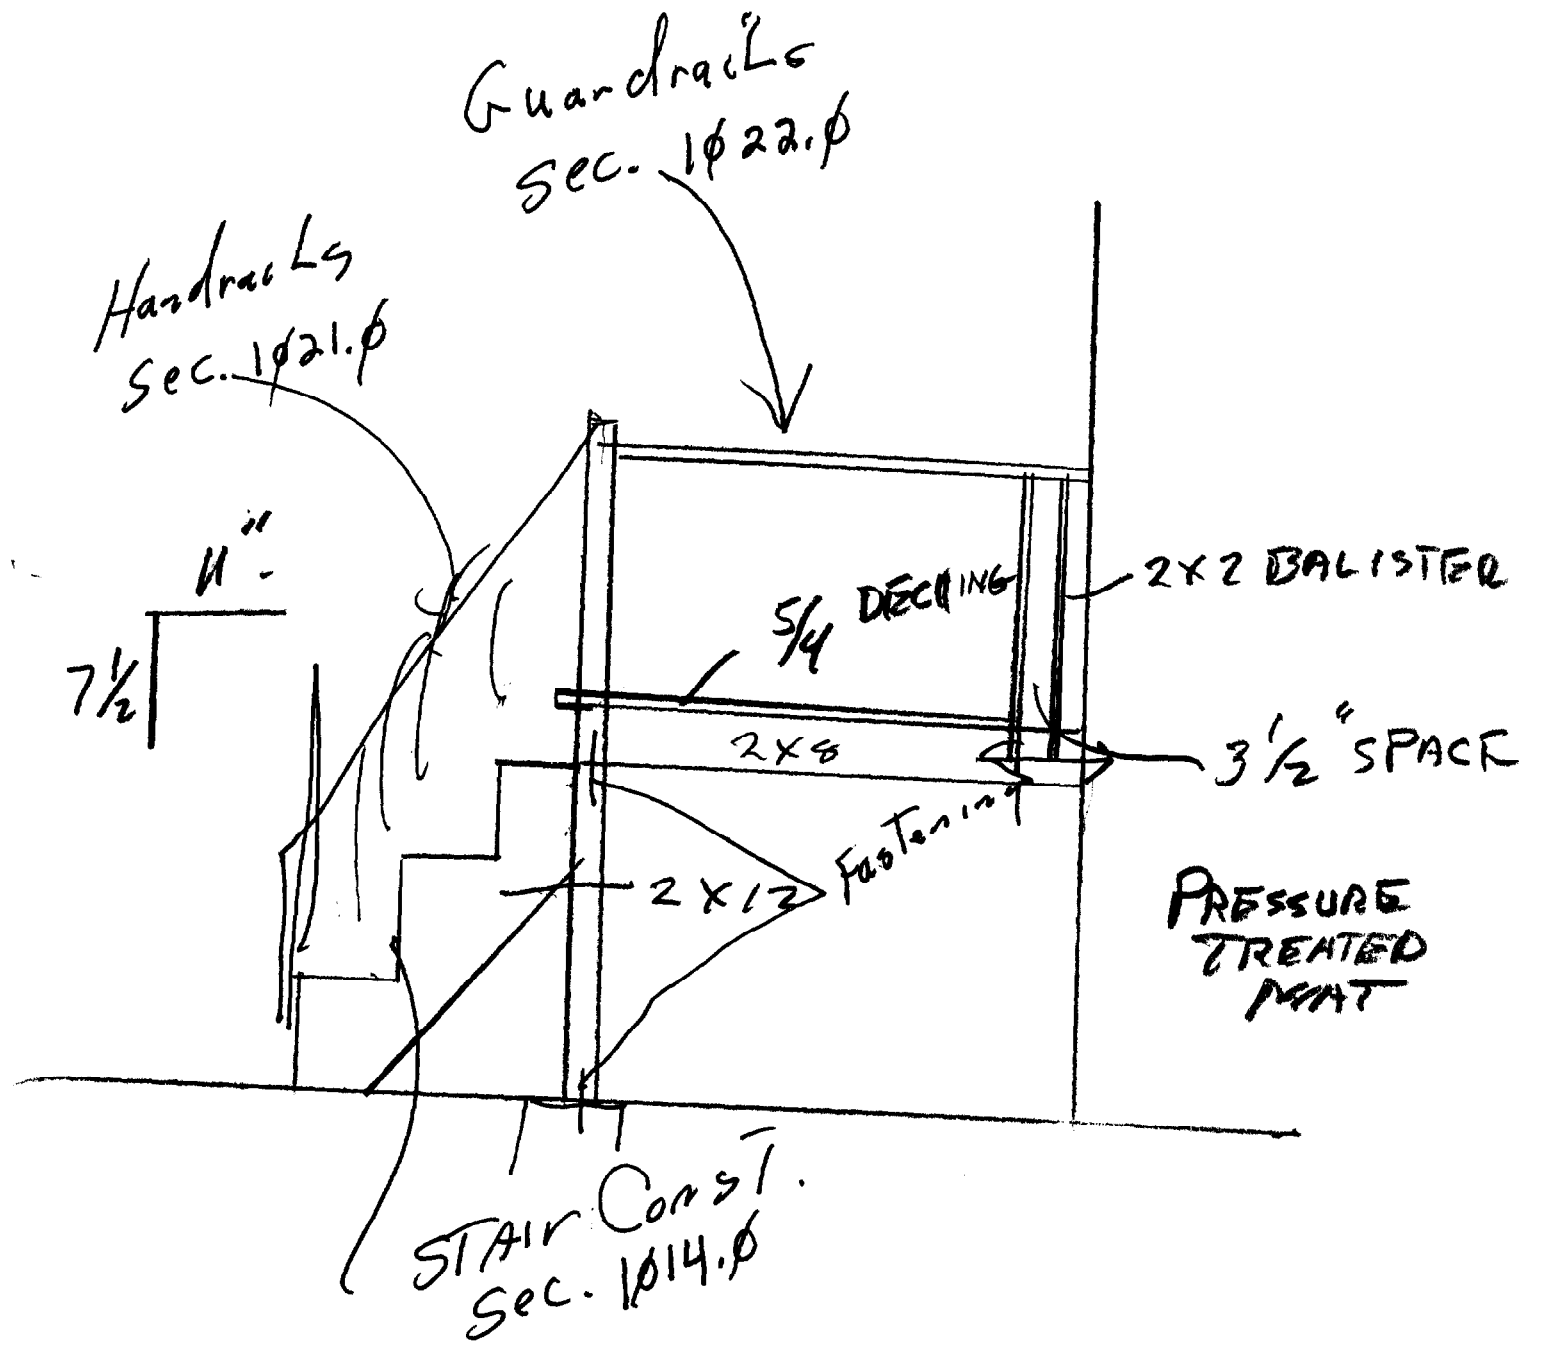 Guardrails
Sec. 1022.0
Handrails
Sec. 1021.0
11"
7 1/2
5/4 DECKING
2x2 BALISTER
2x8
3 1/2" SPACE
Fastening
2x12
PRESSURE
TREATED
MAT
STAIR CONST.
Sec. 1014.0